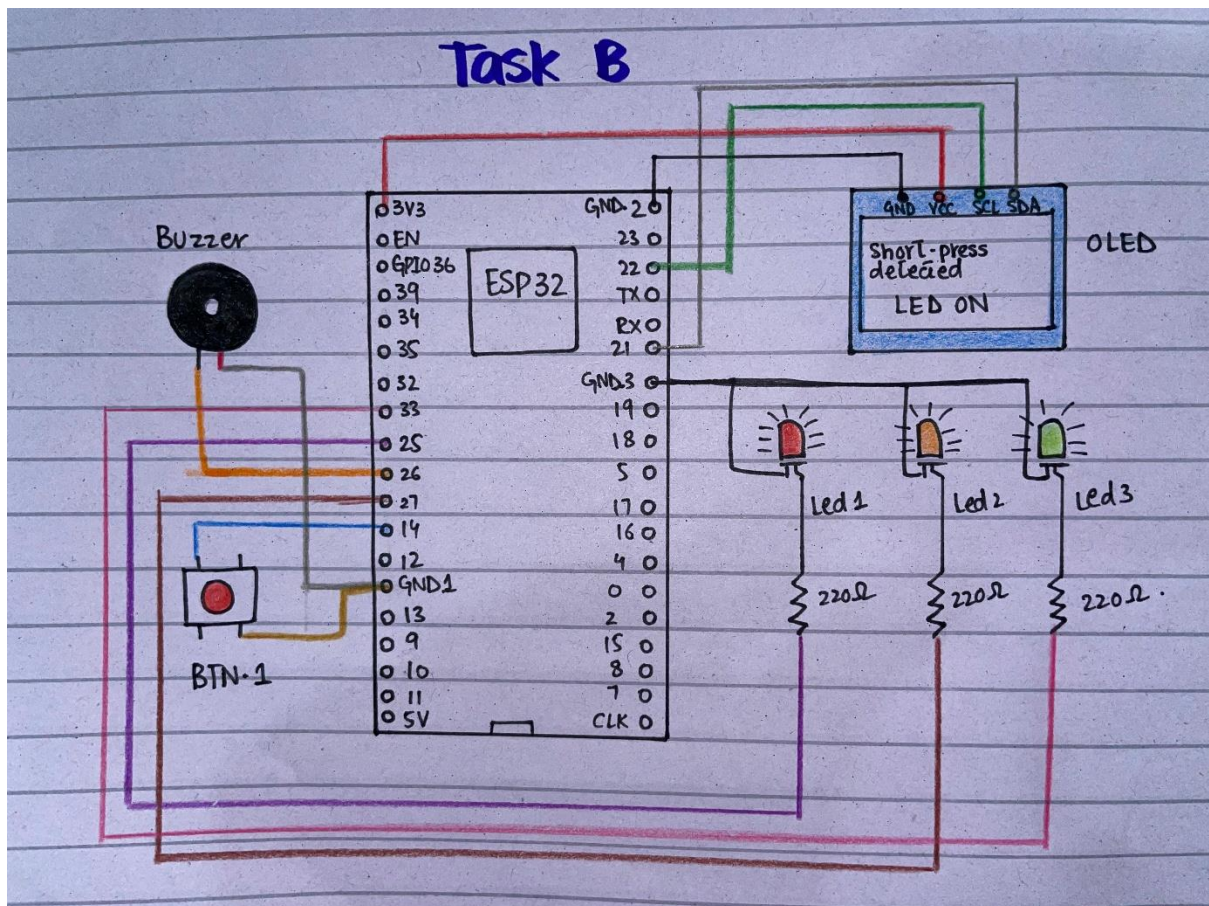 Task B
Buzzer
3V3
EN
GPIO36
39
34
35
32
33
25
26
27
14
12
GND1
13
9
10
11
5V
ESP32
GND.2
23
22
TX
RX
21
GND.3
19
18
5
17
16
4
0
2
15
8
7
CLK
GND VCC SCL SDA
Short-press
detected
LED ON
OLED
Led 1
Led 2
Led 3
220Ω
220Ω
220Ω.
BTN.1